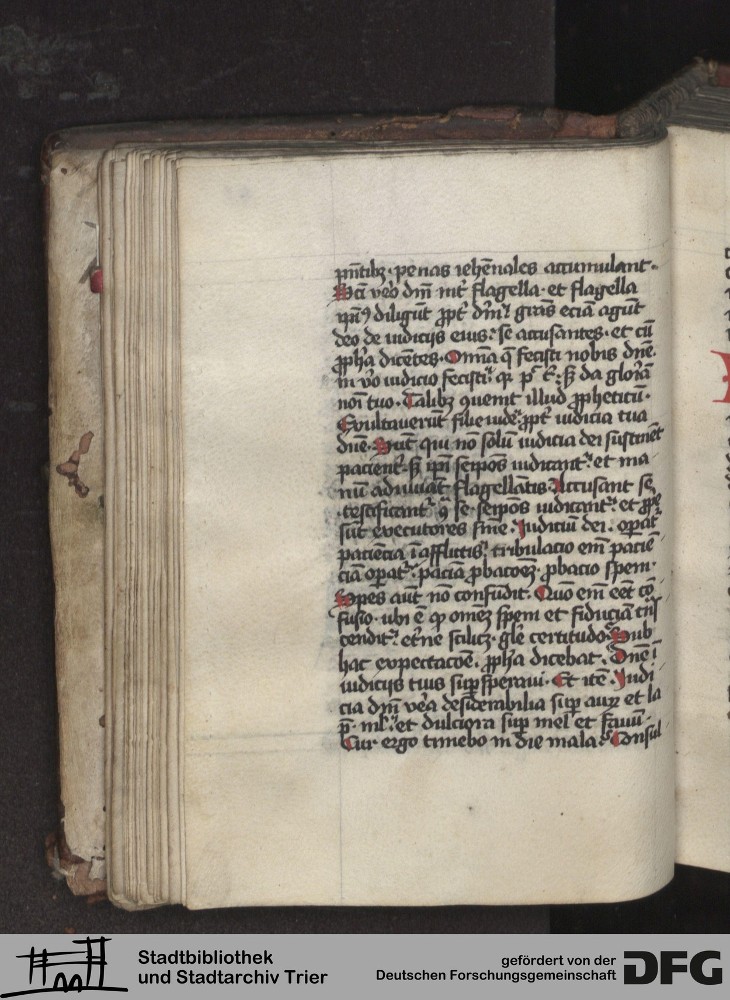 pntibz · penas iehēnales accumulant ·
Scī vero dnī nrī flagella · et flagella
diligūt ppt dnī grās eciā agūt
deo de iudicijs eius : se accusantes · et cū
ppha dicētes · Omīa q̄ fecisti nobis dnē ·
in vō iudicio fecisti · sz da gloriā
noī tuo · Talibz quenit illud ppheticū ·
Exultauerūt filie iude : ppt iudicia tua
dnē · Sūt qui nō solū iudicia dei sustinēt
pacient · sz ipī seipōs iudicant : et ma
nū adiuuāt flagellātis · Accusant se
testificant se · seipōs iudicant : et
sūt executores sine · Iudiciū dei · opat
pacienciā ī afflictis : tribulacio em pacie
ciā opat · paciā pbacoez · pbacio spem ·
Spes aūt nō confūdit · Quo em eēt cō
fusio · ubi ē omez spem et fiduciā
tendit : etne scilicz · gle certitudo · Sub
hac expectacōe · ppha dicebat · Dnē ī
iudicijs tuis supsperaui · Et itē · Iudi
cia dnī vēa desiderabilia sup auz et la
p̄ · ml : et dulciora sup mel et fauū ·
Cur ergo timebo in die mala : Consul
Stadtbibliothek
und Stadtarchiv Trier
gefördert von der
Deutschen Forschungsgemeinschaft
DFG